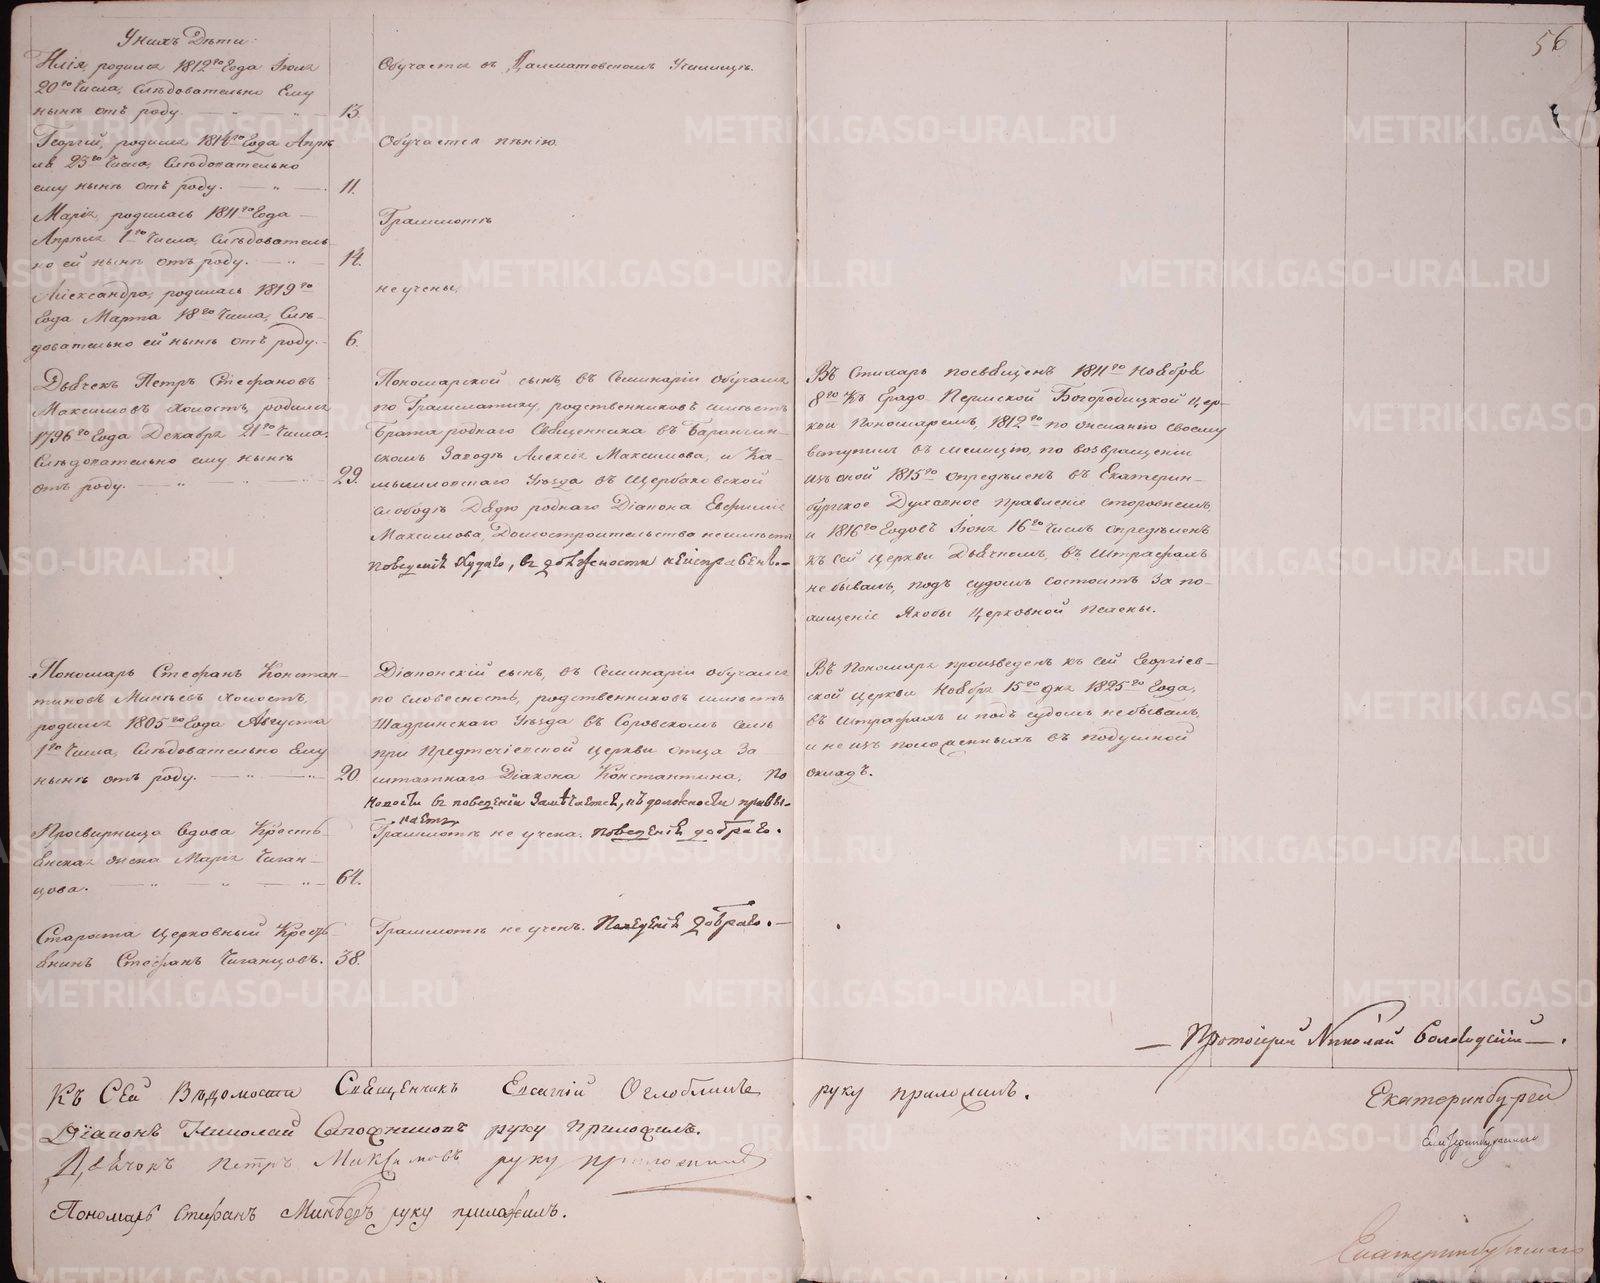 56
У нихъ Дѣти:
Илія, родился 1812го Года Іюля
20го Числа, Слѣдовательно Ему
нынѣ отъ роду. 13.
Обучается въ Далматовскомъ Училищѣ.
Георгій, родился 1814го Года Апрѣ
ля 23го Числа, Слѣдовательно
ему нынѣ отъ роду. — „ — 11.
Обучается пѣнію
Марія, родилась 1811го Года —
Апрѣля 1го Числа, Слѣдователь-
но ей нынѣ отъ роду. — „ — 14.
Грамматѣ
Александра, родилась 1819го
Года Марта 18го Числа, Слѣ-
довательно ей нынѣ отъ роду. — 6.
не учены,
Дьячекъ Петръ Стефановъ
Максимовъ холостъ, родился
1796го Года Декабря 21го Числа,
Слѣдовательно ему нынѣ
отъ роду. — „ — „ — 29.
Пономарской сынъ, въ Семинаріи обучался
по Грамматику, родственниковъ имѣетъ
Брата роднаго Священника въ Баранчин-
скомъ Заводѣ Алексія Максимова, и Ка-
мышловскаго Уѣзда въ Щербаковской
слободѣ Дядю роднаго Діакона Евфимія
Максимова, Домостроительства неимѣетъ
поведенія худаго, въ должности неисправенъ. —
Въ Стихарь посвященъ 1811го Ноября
8го Къ Градо-Пермской Богородицкой цер-
кви Пономаремъ, 1812го по желанію своему
вступилъ въ милицію, по возвращеніи
изъ оной 1815го опредѣленъ въ Екатерин-
бургское Духовное правленіе сторожемъ,
а 1816го Годовъ Іюня 16го Числъ опредѣленъ
къ сей церкви Дьячкомъ, въ Штрафахъ
не бывалъ, подъ судомъ состоитъ За по-
хищеніе Якобы Церковной пелены.
Пономарь Стефанъ Констан-
тиновъ Мингѣевъ холостъ,
родился 1805го Года Августа
1го Числа, Слѣдовательно Ему
нынѣ отъ роду. — „ — „ 20.
Діаконскій сынъ, въ Семинаріи обучался
по словесность, родственниковъ имѣетъ
Шадринскаго Уѣзда въ Соровскомъ Селѣ
при Предтечіевской церкви отца За
штатнаго Діакона Константина, по
новости въ поведеніи замѣчается, къ должности привы-
каетъ
Въ Пономаря произведенъ къ сей Георгіев-
ской церкви Ноября 15го дня 1825го Года,
въ штрафахъ и подъ судомъ не бывалъ,
и не изъ положенныхъ въ подушной
окладъ.
Просвирница вдова Кресть-
янская жена Марія Чиган-
цова. — „ — „ — „ — 64.
Грамматѣ не учена. Поведенія добраго.
Староста церковный Кресть-
янинъ Стефанъ Чиганцовъ. 38.
Грамматѣ не ученъ. Поведенія добраго. —
— Протоіерей Николай —.
Къ Сей Вѣдомости Священникъ Евсигній Оглоблинъ руку приложилъ.
Діаконъ Николай Сапожниковъ руку приложилъ.
Дьячокъ Петръ Максимовъ руку приложилъ
Пономарь Стефанъ Мингѣевъ руку приложилъ.
Екатеринбургск
Екатеринбургскаго
Екатеринбургскаго
METRIKI.GASO-URAL.RU